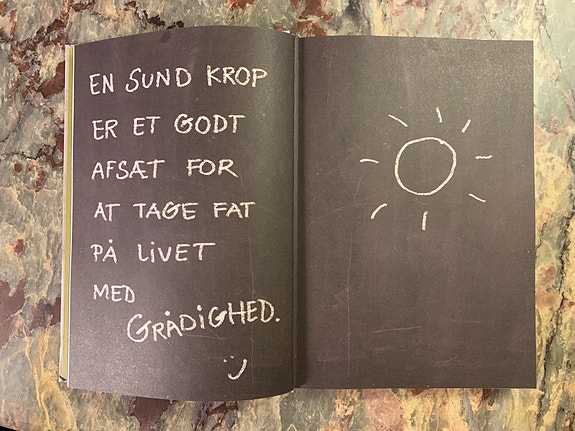 EN SUND KROP
ER ET GODT
AFSÆT FOR
AT TAGE FAT
PÅ LiVET
MED
GRÅDiGHED.